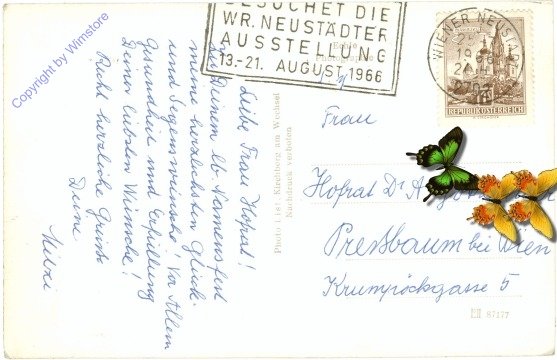 Copyright by Winstore
BESUCHET DIE
WR. NEUSTÄDTER
AUSSTELLUNG
13.-21. AUGUST 1966
WIENER NEUSTADT
REPUBLIK ÖSTERREICH
Liebe Frau Hofrat!
Zu Deinem lb. Namensfest
meine herzlichsten Glück-
und Segenswünsche! Vor Allem
Gesundheit und Erfüllung
Deiner liebsten Wünsche!
Recht herzliche Grüße
Deine
Mitzi
Photo List Kirchberg am Wechsel
Nachdruck verboten
Echte
Photographie
Frau
Hofrat Dr
Pressbaum bei Wien
Krumpöckgasse 5
87177